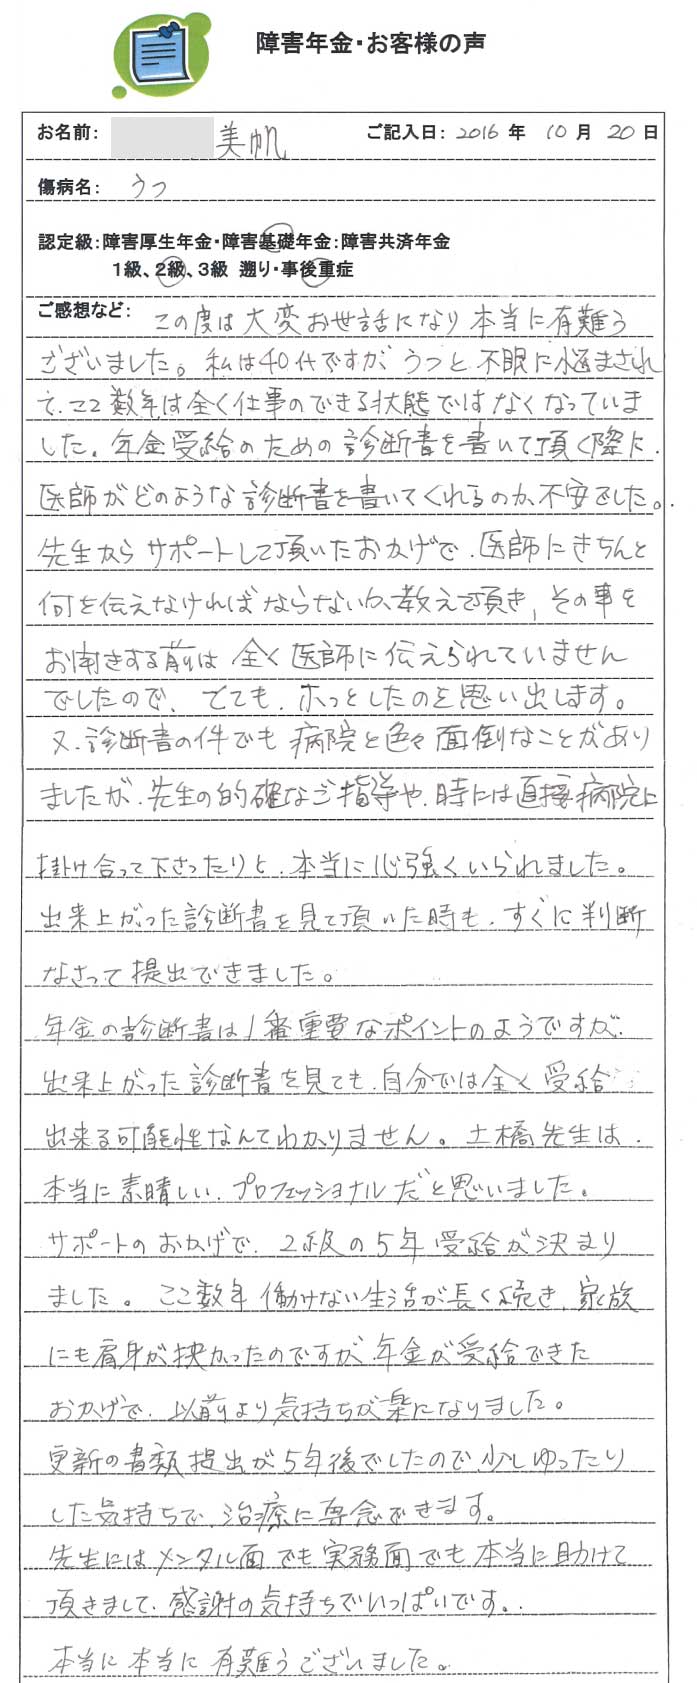 障害年金・お客様の声
お名前: 美帆 ご記入日: 2016 年 10 月 20 日
傷病名: うつ
認定級:障害厚生年金・障害基礎年金:障害共済年金
1級、2級、3級 遡り・事後重症
ご感想など: この度は大変お世話になり本当に有難う
ございました。私は40代ですが、うつと不眠に悩まされ
て、ここ数年は全く仕事のできる状態ではなくなっていま
した。年金受給のための診断書を書いて頂く際に、
医師がどのような診断書を書いてくれるのか、不安でした。
先生からサポートして頂いたおかげで、医師にきちんと
何を伝えなければならないか、教えて頂き、その事を
お聞きする前は全く医師に伝えられていません
でしたので、とても、ホっとしたのを思い出します。
又、診断書の件でも病院と色々面倒なことがあり
ましたが、先生の的確なご指導や、時には直接病院に
掛け合って下さったりと、本当に心強くいられました。
出来上がった診断書を見て頂いた時も、すぐに判断
なさって提出できました。
年金の診断書は1番重要なポイントのようですが、
出来上がった診断書を見ても、自分では全く受給
出来る可能性なんてわかりません。土橋先生は、
本当に素晴しい、プロフェッショナルだと思いました。
サポートのおかげで、2級の5年受給が決まり
ました。ここ数年働けない生活が長く続き、家族
にも肩身が狭かったのですが、年金が受給できた
おかげで、以前より気持ちが楽になりました。
更新の書類提出が5年後でしたので、少しゆったり
した気持ちで、治療に専念できます。
先生にはメンタル面でも実務面でも本当に助けて
頂きまして、感謝の気持ちでいっぱいです。
本当に本当に有難うございました。